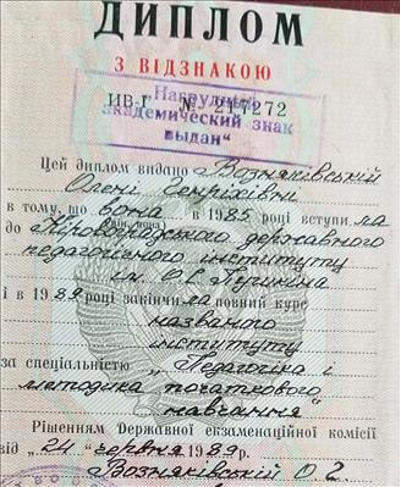 ДИПЛОМ
З ВІДЗНАКОЮ
ИВ-І № 217272
"Нагрудный
академический знак
выдан"
Цей диплом видано Возняківській
Олені Генріхівні
в тому, що вона в 1985 році вступила
до Кіровоградського державного
педагогічного інституту
ім. О.С. Пушкіна
і в 1989 році закінчила повний курс
названого
інституту
за спеціальністю „Педагогіка і
методика початкового
навчання"
Рішенням Державної екзаменаційної комісії
від „24" червня 1989 р.
Возняківській О. Г.